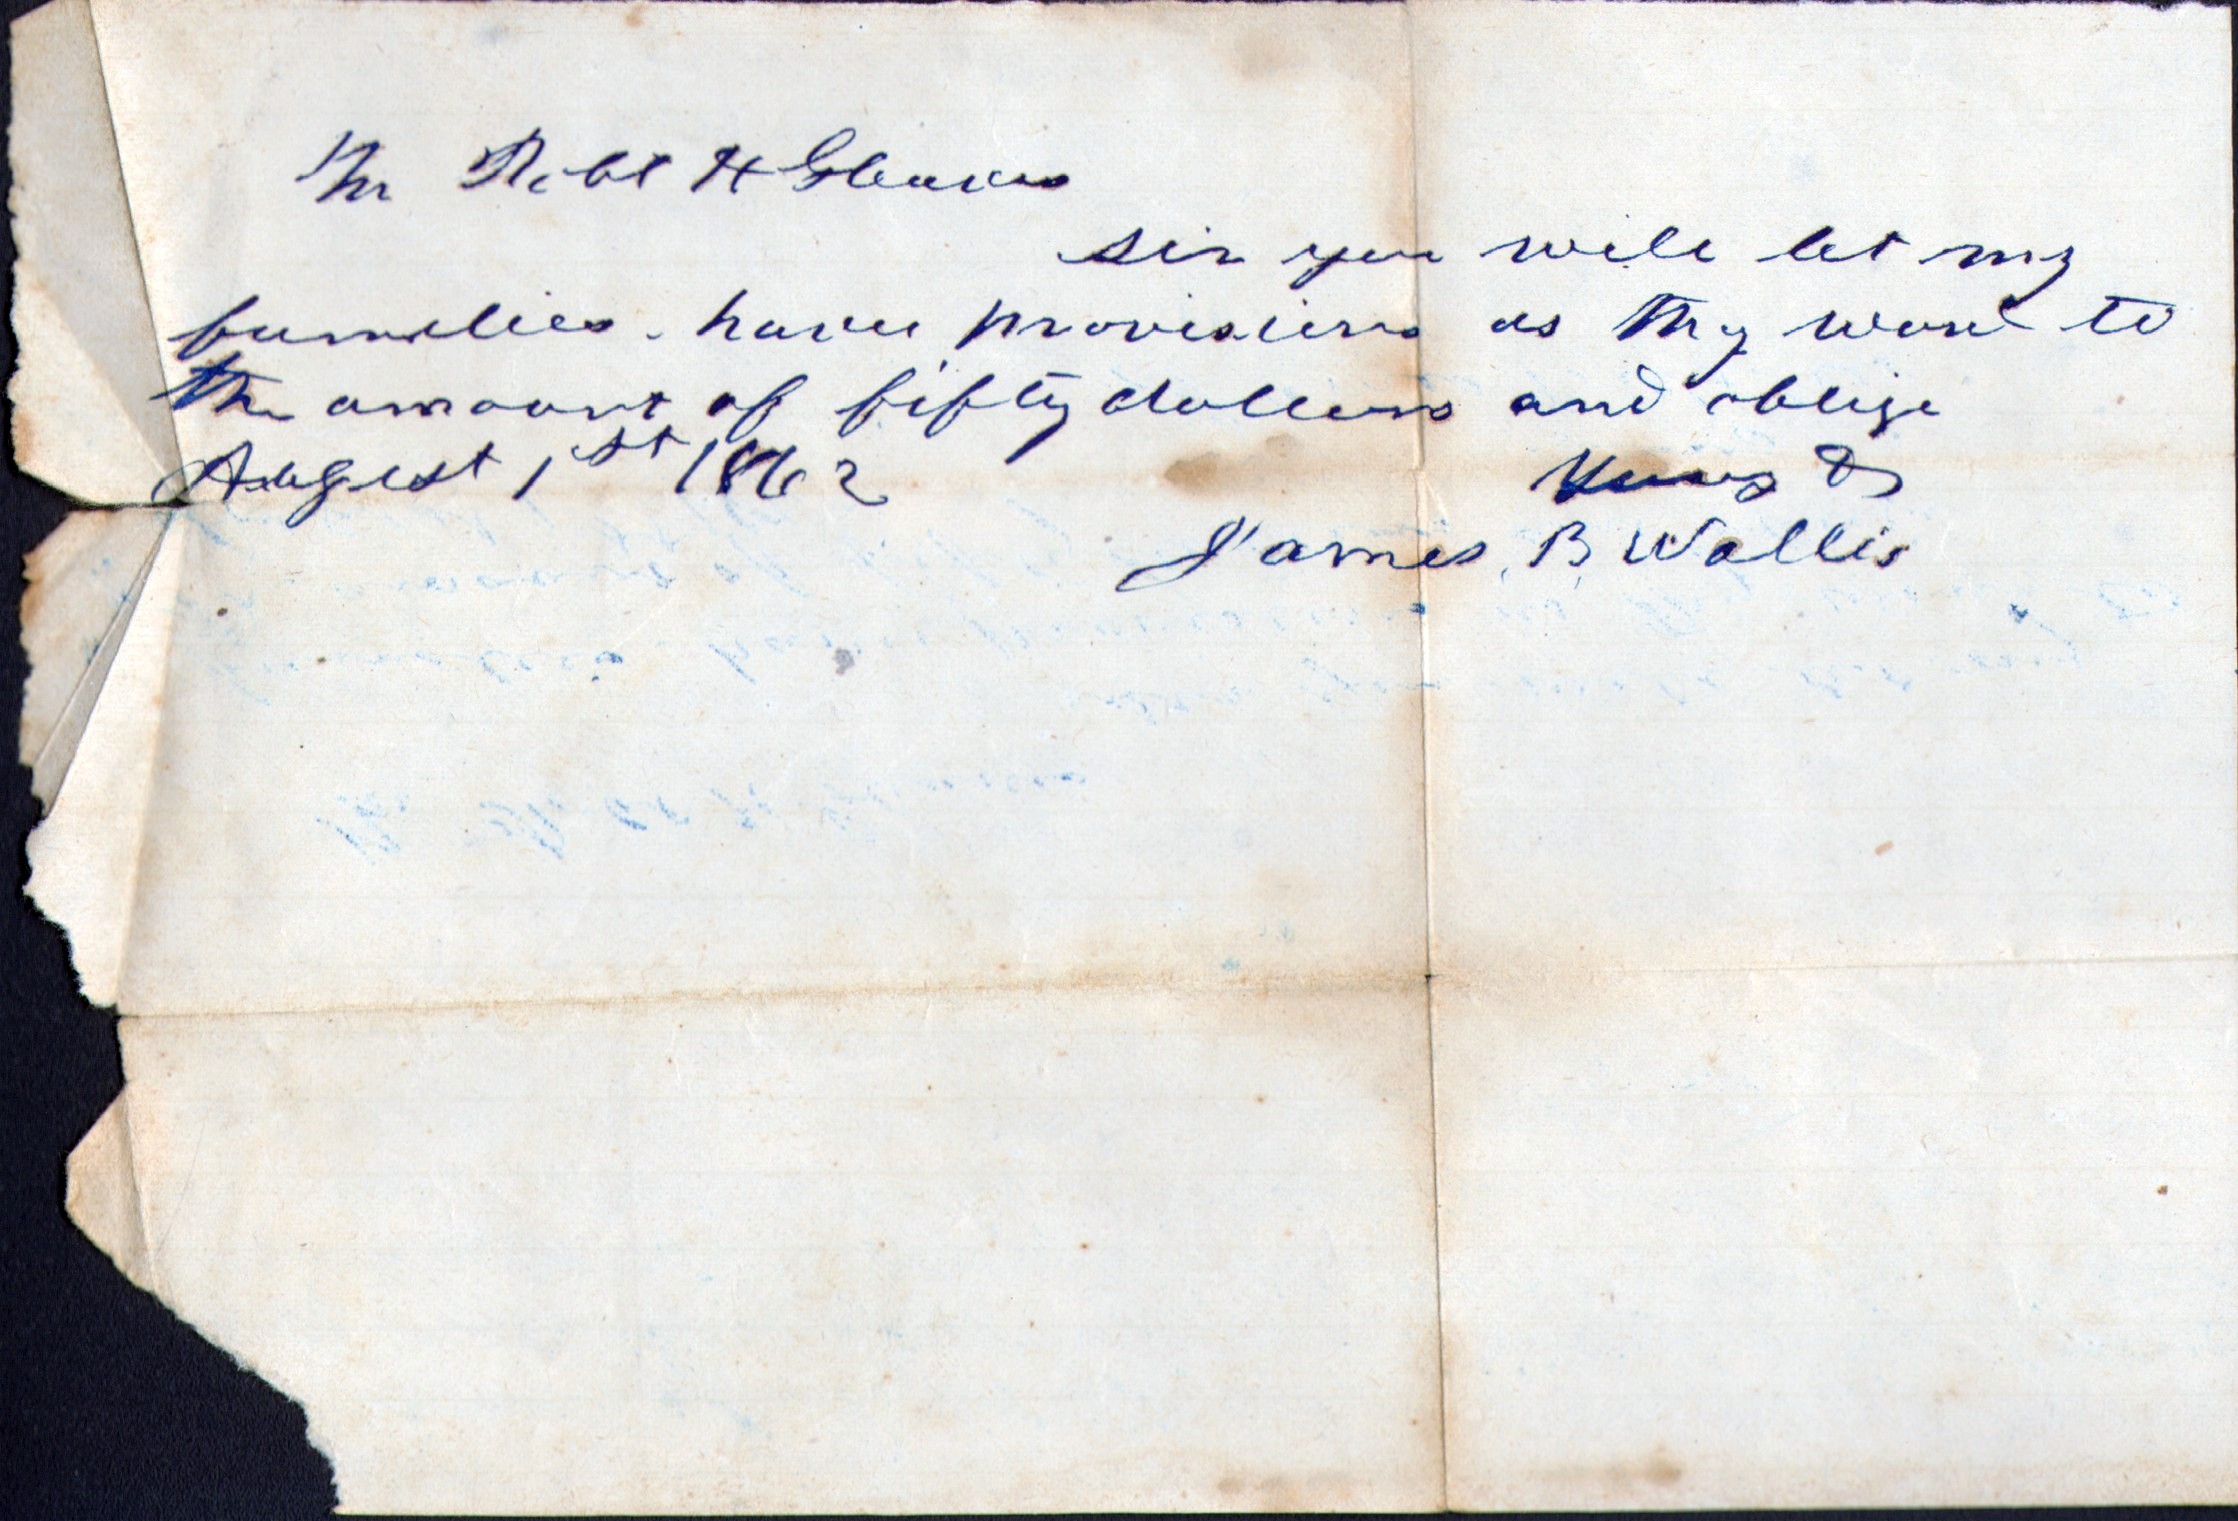 Mr Robt H Gleaves
Sir you will let my
families have provisions as they want to
the amount of fifty dollars and oblige
Augest 1st 1862 Yours &
James. B. Wallis